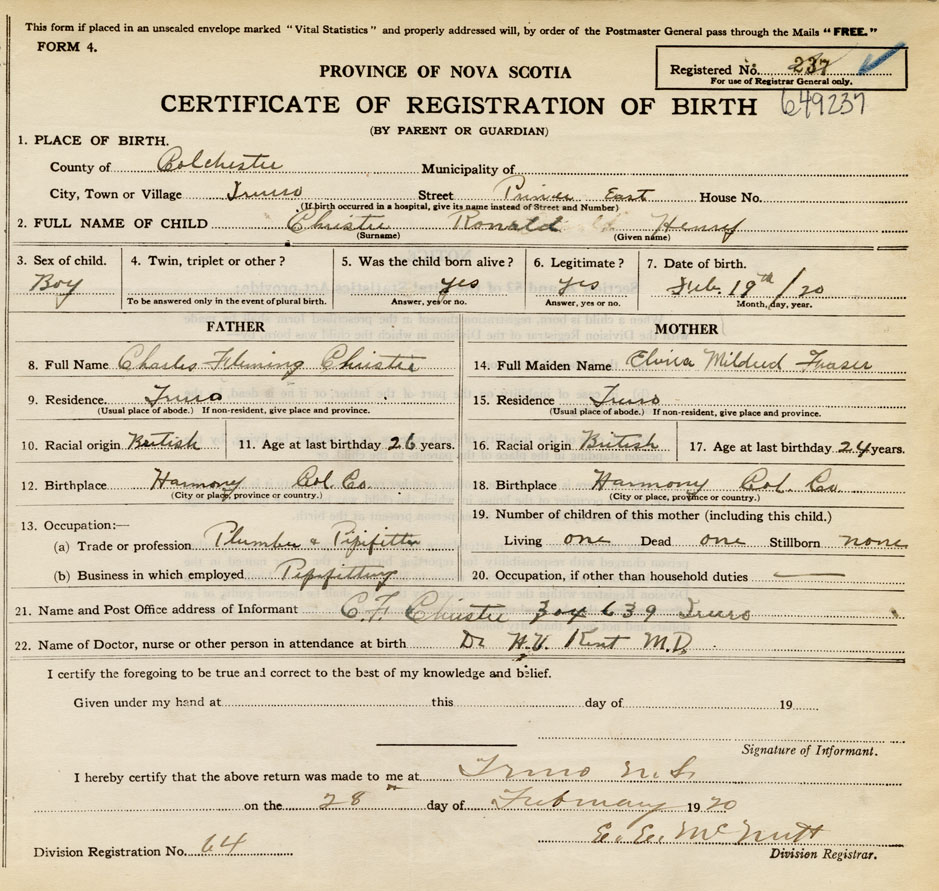 This form if placed in an unsealed envelope marked "Vital Statistics" and properly addressed will, by order of the Postmaster General pass through the Mails "FREE."
FORM 4.
Registered No. 237
For use of Registrar General only.
PROVINCE OF NOVA SCOTIA
CERTIFICATE OF REGISTRATION OF BIRTH 649237
(BY PARENT OR GUARDIAN)
1. PLACE OF BIRTH.
County of Colchester Municipality of
City, Town or Village Truro Street Prince East House No.
(If birth occurred in a hospital, give its name instead of Street and Number)
2. FULL NAME OF CHILD Christie Ronald Henry
(Surname) (Given name)
3. Sex of child. 4. Twin, triplet or other? 5. Was the child born alive? 6. Legitimate? 7. Date of birth.
Boy yes yes Feb. 19th/20
To be answered only in the event of plural birth. Answer, yes or no. Answer, yes or no. Month, day, year.
FATHER MOTHER
8. Full Name Charles Fleming Christie 14. Full Maiden Name Elvira Mildred Fraser
9. Residence. Truro 15. Residence Truro
(Usual place of abode.) If non-resident, give place and province. (Usual place of abode.) If non-resident, give place and province.
10. Racial origin British 11. Age at last birthday 26 years. 16. Racial origin British 17. Age at last birthday 24 years.
12. Birthplace Harmony Col. Co. 18. Birthplace Harmony Col. Co
(City or place, province or country.) (City or place, province or country.)
13. Occupation:— 19. Number of children of this mother (including this child.)
(a) Trade or profession Plumber & Pipefitter Living one Dead one Stillborn none
(b) Business in which employed Pipefitting 20. Occupation, if other than household duties —
21. Name and Post Office address of Informant C. F. Christie Box 639 Truro
22. Name of Doctor, nurse or other person in attendance at birth Dr H.V. Kent M.D.
I certify the foregoing to be true and correct to the best of my knowledge and belief.
Given under my hand at this day of 19
Signature of Informant.
I hereby certify that the above return was made to me at Truro N.S.
on the 28th day of February 1920
E. E. McNutt
Division Registration No. 64 Division Registrar.